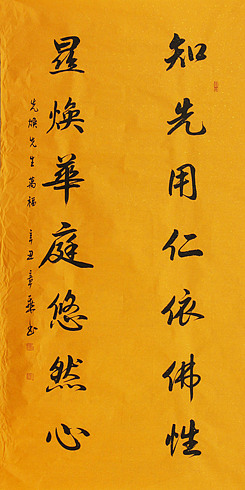 知先用仁依佛性
星焕華庭悠然心
先焕先生萬福
辛丑章乘書